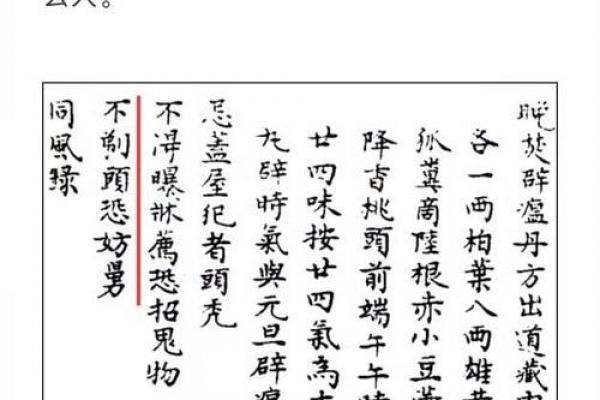 晚焚辟瘟丹方出道藏
各一兩柏葉八兩雄
狐糞商陸根赤小豆
降香桃頭前端午午
廿四味按廿四氣為
丸辟時氣與元旦辟瘟
忌蓋屋犯者頭禿
不淂曝牀薦恐招鬼物
不剃頭恐妨舅
同風錄